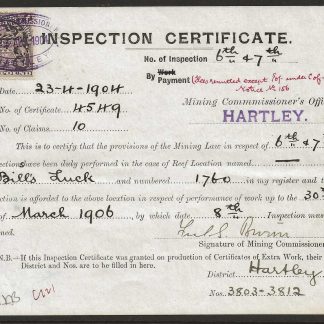 INSPECTION CERTIFICATE.
No. of Inspection 6th & 7th
By Work
Payment (Fees remitted except
Notice No 156
Date 23-4-1904
Mining Commissioner's Offi
No. of Certificate 4549
HARTLEY.
No. of Claims 10
This is to certify that the provisions of the Mining Law in respect of 6th & 7
been duly performed in the case of Reef Location named
Bill's Luck and numbered 1760 in my register and t
ction is afforded to the above location in respect of performance of work up to the 30
of March 1906, by which date 8th Inspection mu
Signature of Mining Commissione
N.B.—If this Inspection Certificate was granted on production of Certificates of Extra Work, their
District and Nos. are to be filled in here.
District Hartley
Nos. 3803-3812